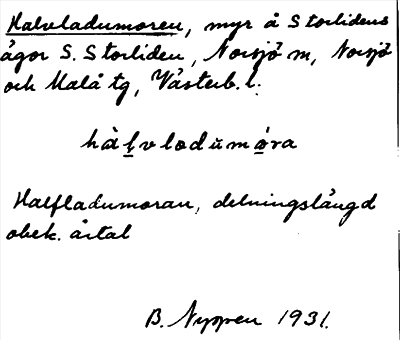 Halvladumoren, myr å Storlidens
ågor S. Storliden, Norsjö m, Norsjö
och Malå tg, Västerb. l.
hàl̠vladŭmo̠ra
Halfladumoran, delningslängd
obek. årtal
B. Nyssen 1931.